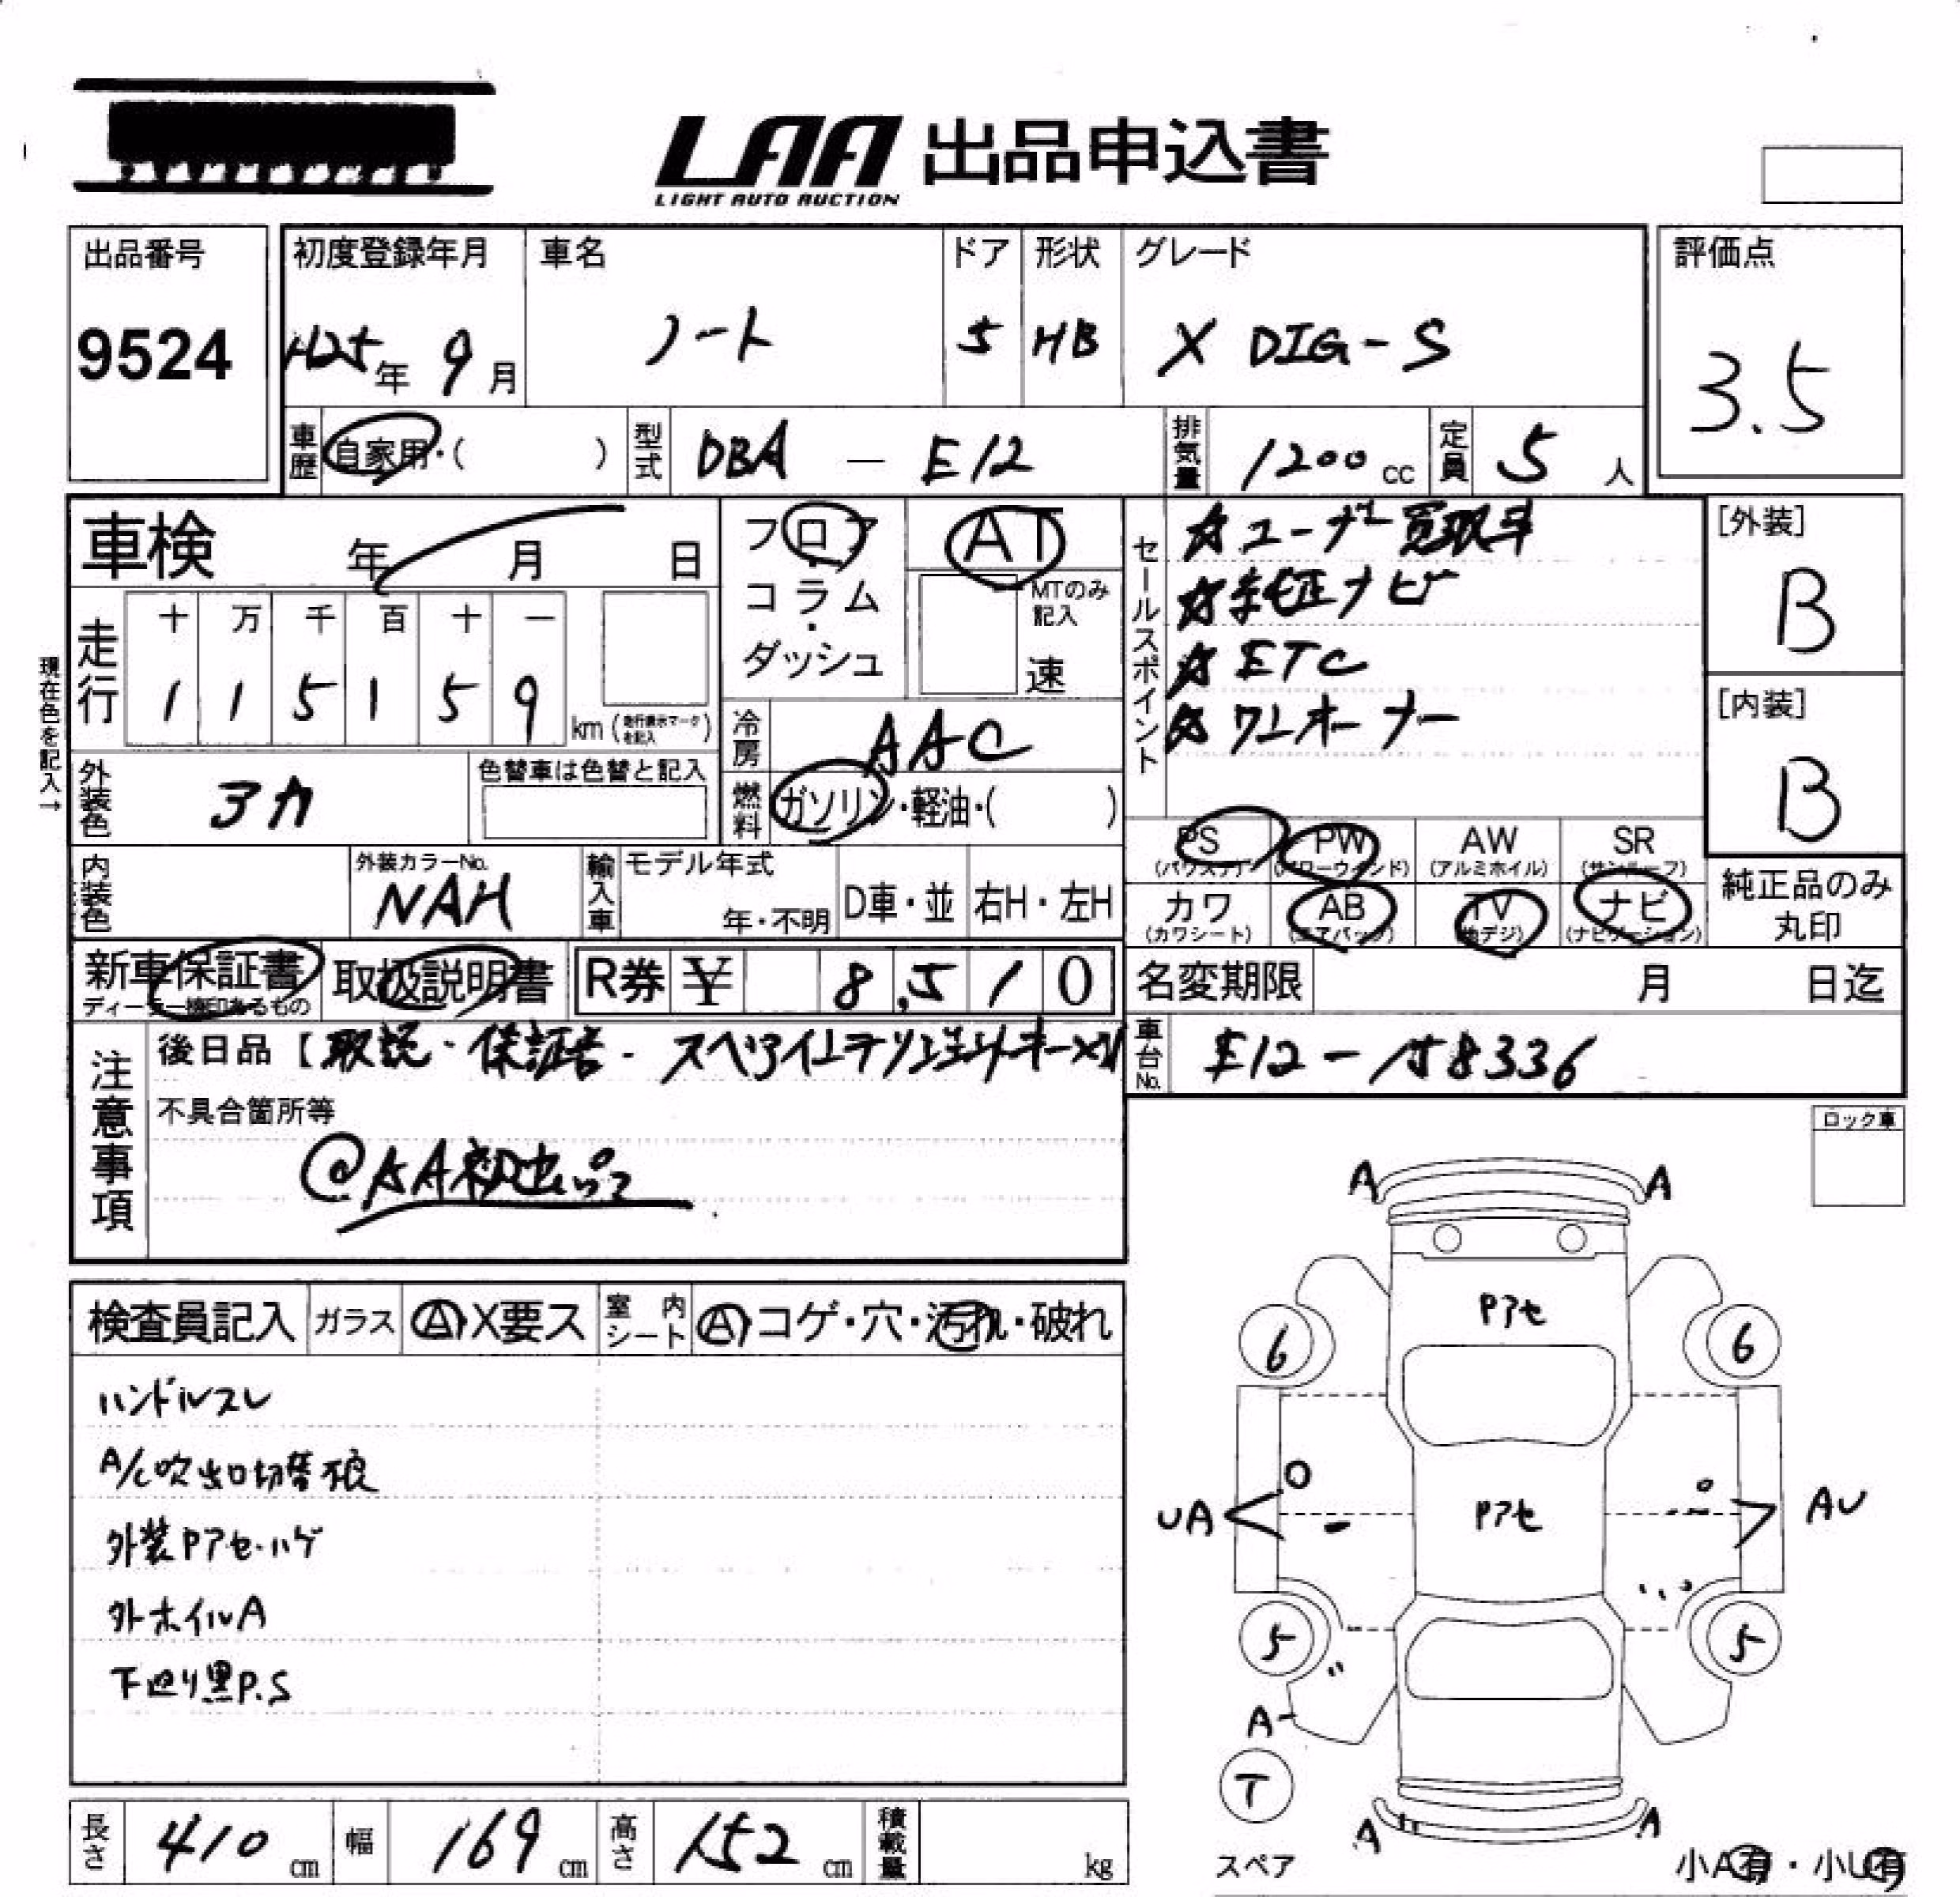 LAA 出品申込書
LIGHT AUTO AUCTION
出品番号
9524
初度登録年月
H25年 9月
車名
ノート
ドア
5
形状
HB
グレード
X DIG-S
評価点
3.5
車歴
自家用・( )
型式
DBA - E12
排気量
1200 cc
定員
5 人
車検 年 月 日
フロア
・
コラム
・
ダッシュ
AT
MTのみ
記入
速
セールスポイント
☆ユーザー買取車
☆純正ナビ
☆ETC
☆ワンオーナー
[外装]
B
[内装]
B
現在色を記入→
走行
十 万 千 百 十 一
1 1 5 1 5 9
km (走行表示マークを記入)
冷房
AAC
外装色
ヨカ
色替車は色替と記入
燃料
ガソリン・軽油・( )
PS
(パワステ)
PW
(パワーウインド)
AW
(アルミホイル)
SR
(サンルーフ)
内装色
外装カラーNo.
NAH
輸入車
モデル年式
年・不明
D車・並
右H・左H
カワ
(カワシート)
AB
(エアバッグ)
TV
(地デジ)
ナビ
(ナビゲーション)
純正品のみ
丸印
新車保証書
ディーラー捺印あるもの
取扱説明書
R券 ¥ 8,510
名変期限 月 日迄
注意事項
後日品【取説・保証書・スペアインテリジェントキー×1
車台No.
E12-158336
不具合箇所等
@AA初出品
ロック車
検査員記入
ガラス
A・X要ス
室内
シート
A・コゲ・穴・汚れ・破れ
ハンドルスレ
A/C吹出口切替不良
外装Pアセ・ハゲ
外ホイルA
下廻り黒P.S
A A
Pアセ
6 6
UA Pアセ AU
5 5
A
T
A A
スペア
小A有・小U有
長さ
410 cm
幅
169 cm
高さ
152 cm
積載量
kg